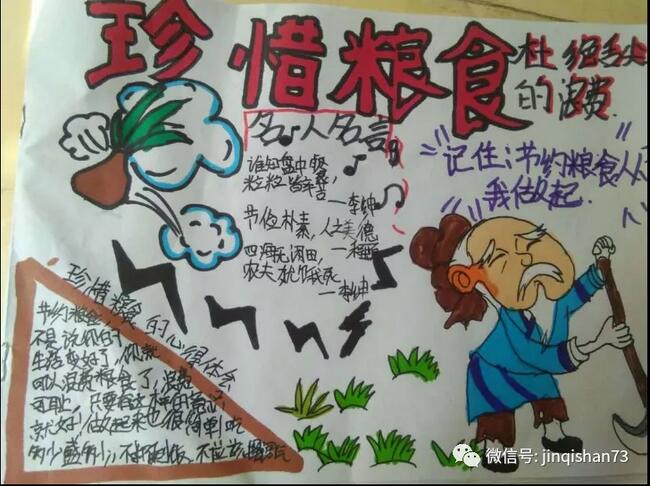 珍惜粮食
杜绝舌尖
的浪费
名人名言
谁知盘中餐
粒粒皆辛苦
节俭朴素，人之美德
四海无闲田，
农夫犹饿死
记住：节约粮食从
我做起.
珍惜粮食的心得体会
节约粮食,
不是说你的
生活变好了,你就
可以浪费粮食了,浪费
可耻,只要有这种的意识,
就好,做起来也很简单,吃
多少盛多少,不扔剩饭,不应该
微信号: jinqishan73